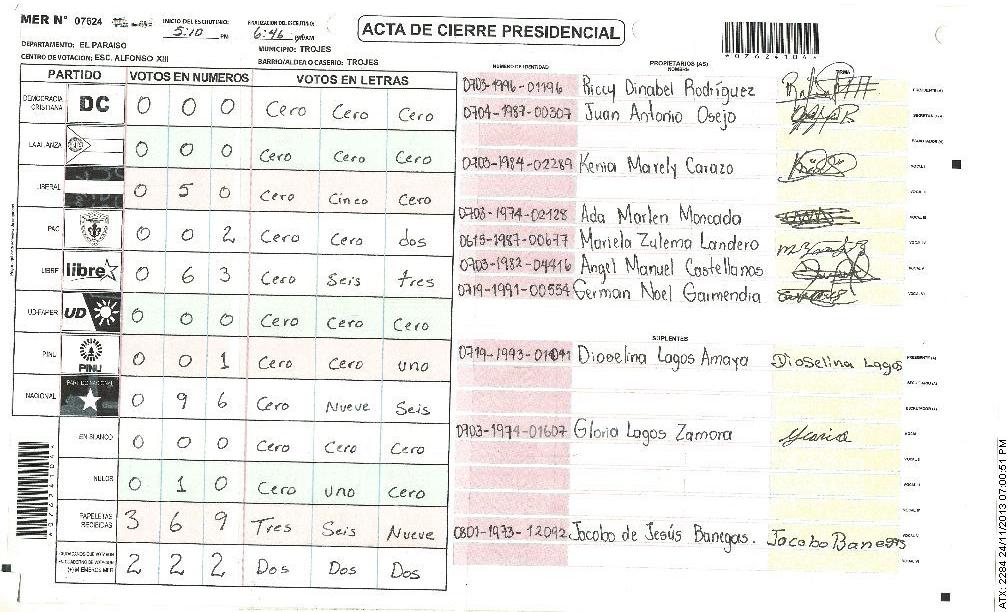 MER N° 07624
INICIO DEL ESCRUTINIO: 5:10 PM
FINALIZACION DEL ESCRUTINIO: 6:46
ACTA DE CIERRE PRESIDENCIAL
*07624106*
DEPARTAMENTO: EL PARAISO
MUNICIPIO: TROJES
CENTRO DE VOTACION: ESC. ALFONSO XIII
BARRIO/ALDEA O CASERIO: TROJES
PARTIDO VOTOS EN NUMEROS VOTOS EN LETRAS
DEMOCRACIA CRISTIANA DC 0 0 0 Cero Cero Cero
LA ALIANZA 0 0 0 Cero Cero Cero
LIBERAL 0 5 0 Cero Cinco Cero
PAC 0 0 2 Cero Cero dos
LIBRE libre 0 6 3 Cero Seis tres
UD-FAPER UD 0 0 0 Cero Cero Cero
PINU PINU 0 0 1 Cero Cero uno
NACIONAL PARTIDO NACIONAL 0 9 6 Cero Nueve Seis
EN BLANCO 0 0 0 Cero Cero Cero
NULOS 0 1 0 Cero uno Cero
PAPELETAS RECIBIDAS 3 6 9 Tres Seis Nueve
CIUDADANOS QUE VOTARON EN CUADERNO DE VOTACION (+) MIEMBROS MER 2 2 2 Dos Dos Dos
NUMERO DE IDENTIDAD PROPIETARIOS (AS) NOMBRE FIRMA
0703-1996-01196 Riccy Dinabel Rodríguez PRESIDENTE(A)
0704-1987-00307 Juan Antonio Osejo SECRETARIO(A)
ESCRUTADOR(A)
0703-1984-02289 Kenia Marely Carazo VOCAL I
VOCAL II
0703-1974-02128 Ada Marlen Moncada VOCAL III
0615-1987-00677 Mariela Zulema Landero VOCAL IV
0703-1982-04416 Angel Manuel Castellanos VOCAL V
0719-1991-00554 German Noel Gaimendia VOCAL VI
SUPLENTES
0719-1993-01041 Dioselina Lagos Amaya Dioselina Lagos PRESIDENTE(A)
SECRETARIO(A)
ESCRUTADOR(A)
0703-1974-01607 Gloria Lagos Zamora Gloria VOCAL I
VOCAL II
VOCAL III
VOCAL IV
0801-1973-12092 Jacobo de Jesús Banegas. Jacobo Banegas VOCAL V
VOCAL VI
*07624106*
ATX: 2284 24/11/2013 07:00:51 PM